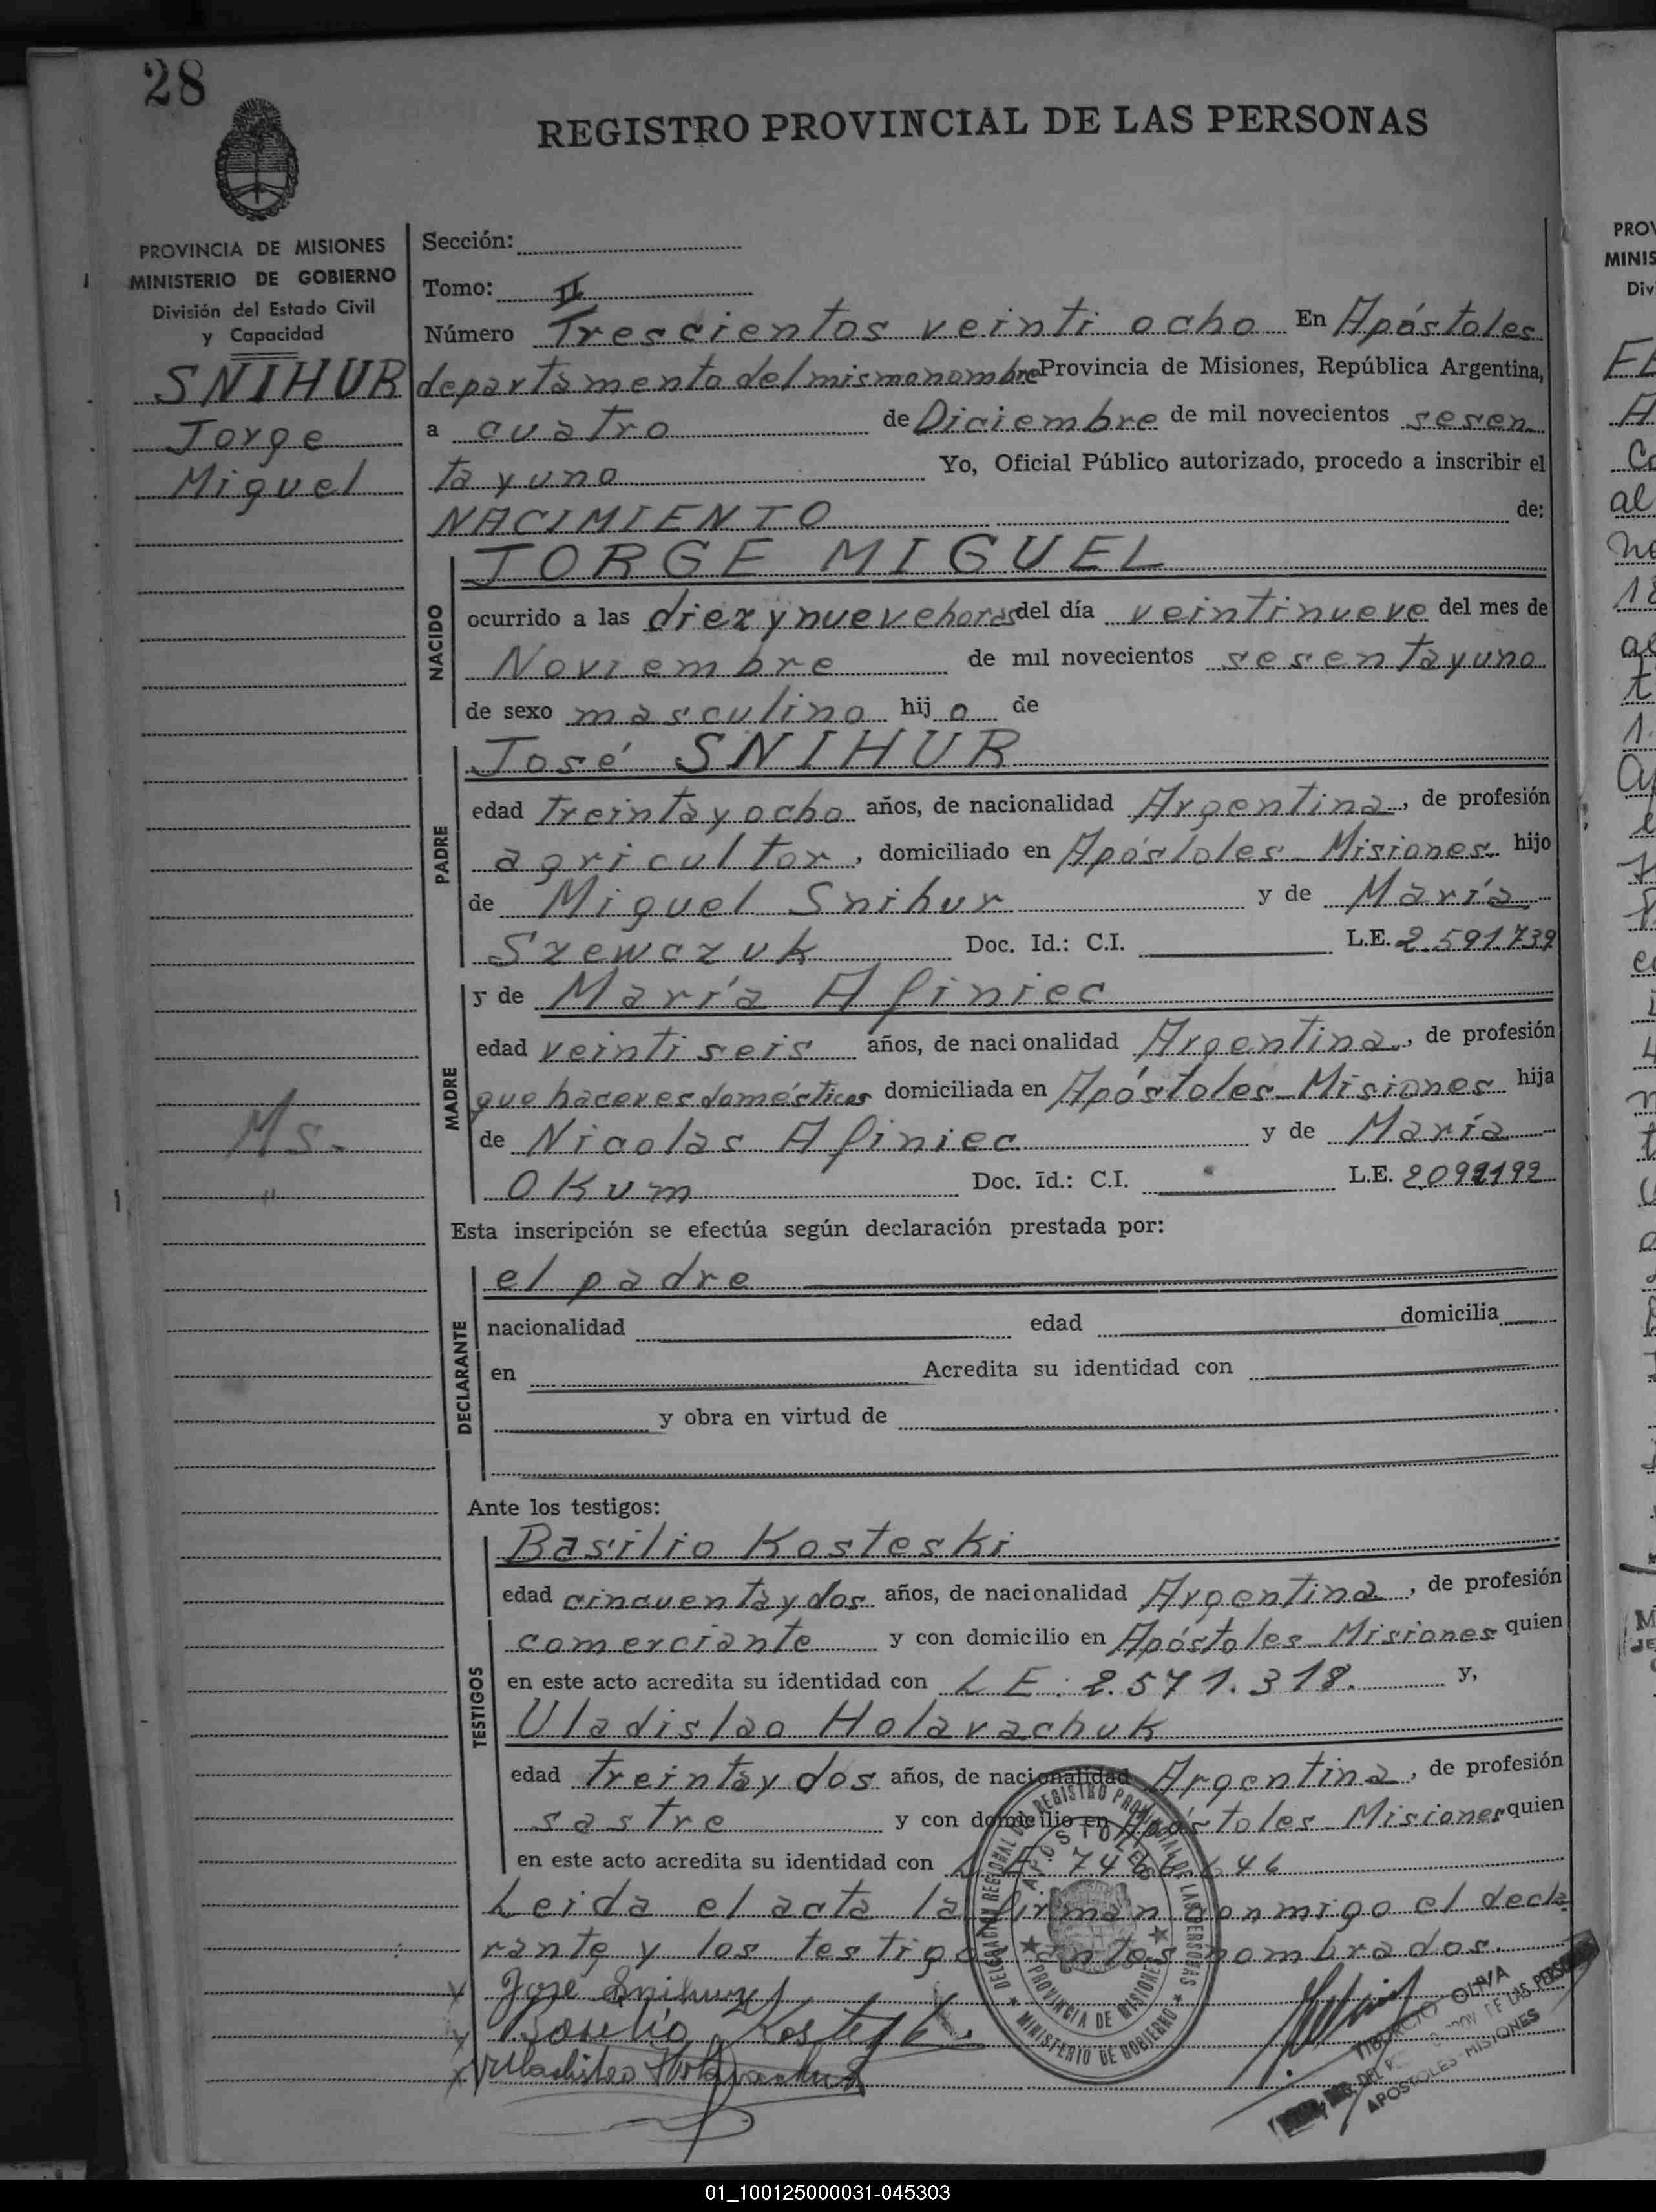 28
REGISTRO PROVINCIAL DE LAS PERSONAS
PROVINCIA DE MISIONES
MINISTERIO DE GOBIERNO
División del Estado Civil
y Capacidad
SNIHUR
Jorge
Miguel
Ms.-
"
Sección:
Tomo: II
Número Trescientos veinti ocho En Apóstoles
departamento del mismo nombre Provincia de Misiones, República Argentina,
a cuatro de Diciembre de mil novecientos sesen
ta y uno Yo, Oficial Público autorizado, procedo a inscribir el
NACIMIENTO de:
NACIDO
JORGE MIGUEL
ocurrido a las diez y nueve horas del día veintinueve del mes de
Noviembre de mil novecientos sesenta y uno
de sexo masculino hijo de
PADRE
José SNIHUR
edad treinta y ocho años, de nacionalidad Argentina, de profesión
agricultor, domiciliado en Apóstoles Misiones hijo
de Miguel Snihur y de María
Szewczuk Doc. Id.: C.I. L.E. 2.591739
MADRE
y de María Afiniec
edad veinti seis años, de nacionalidad Argentina, de profesión
que haceres domésticos domiciliada en Apóstoles-Misiones hija
de Nicolas Afiniec y de María
OKum Doc. Id.: C.I. L.E.
Esta inscripción se efectúa según declaración prestada por:
DECLARANTE
el padre
nacionalidad edad domicilia
en Acredita su identidad con
y obra en virtud de
Ante los testigos:
TESTIGOS
Basilio Kosteski
edad cincuenta y dos años, de nacionalidad Argentina, de profesión
comerciante y con domicilio en Apóstoles Misiones quien
en este acto acredita su identidad con L E: 2.571.318. y,
Uladislao Holavachuk
edad treinta y dos años, de nacionalidad Argentina, de profesión
sastre y con domicilio en Apóstoles-Misiones quien
en este acto acredita su identidad con
Leida el acta la firman conmigo el decla
rante y los testigos antes nombrados.
José Snihur
Basilio Kosteski
Uladislao Holavachuk
DELEGACION REGIONAL DEL REGISTRO PROVINCIAL DE LAS PERSONAS
APOSTOLES
PROVINCIA DE MISIONES
MINISTERIO DE GOBIERNO
TIBURCIO OLIVA
DEL PROV DE LAS PERSONAS
APOSTOLES-MISIONES
PROV
MINIS
Div
01_100125000031-045303